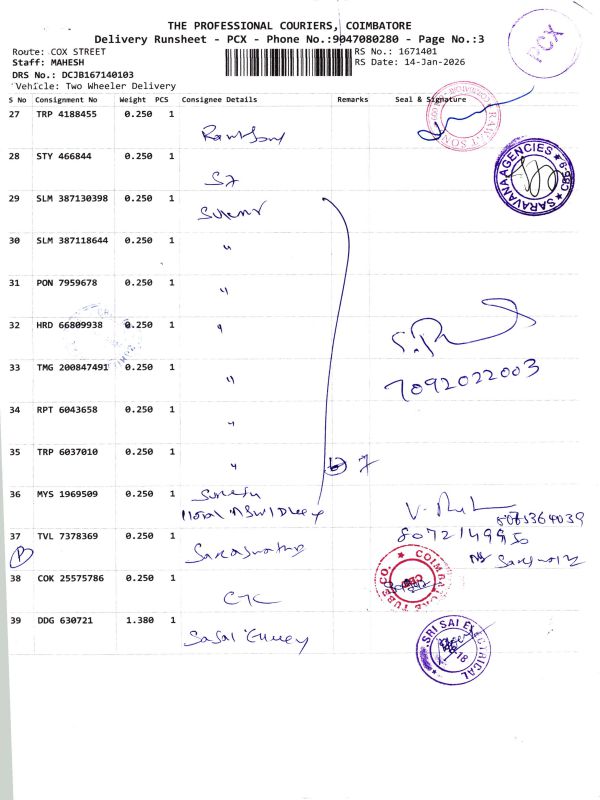 THE PROFESSIONAL COURIERS, COIMBATORE
Delivery Runsheet - PCX - Phone No.:9047080280 - Page No.:3
PCX
Route: COX STREET
RS No.: 1671401
Staff: MAHESH
RS Date: 14-Jan-2026
DRS No.: DCJB167140103
Vehicle: Two Wheeler Delivery
S No Consignment No Weight PCS Consignee Details Remarks Seal & Signature
27 TRP 4188455 0.250 1
28 STY 466844 0.250 1
SARAVANA AGENCIES
29 SLM 387130398 0.250 1
30 SLM 387118644 0.250 1 "
31 PON 7959678 0.250 1 "
32 HRD 66809938 0.250 1 "
33 TMG 200847491 0.250 1 "
7092022003
34 RPT 6043658 0.250 1 "
35 TRP 6037010 0.250 1 " 7
36 MYS 1969509 0.250 1
8072149950
37 TVL 7378369 0.250 1 Saraswathy
P
38 COK 25575786 0.250 1 CTC
COIMBATORE TUBE CO.
39 DDG 630721 1.380 1
SRI SAI ELECTRICAL